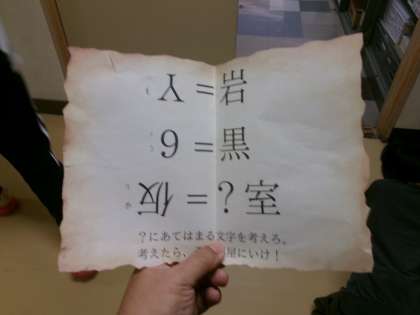 Y=岩
6=黒
仮=?室
?にあてはまる文字を考えろ。
考えたら、 屋にいけ!